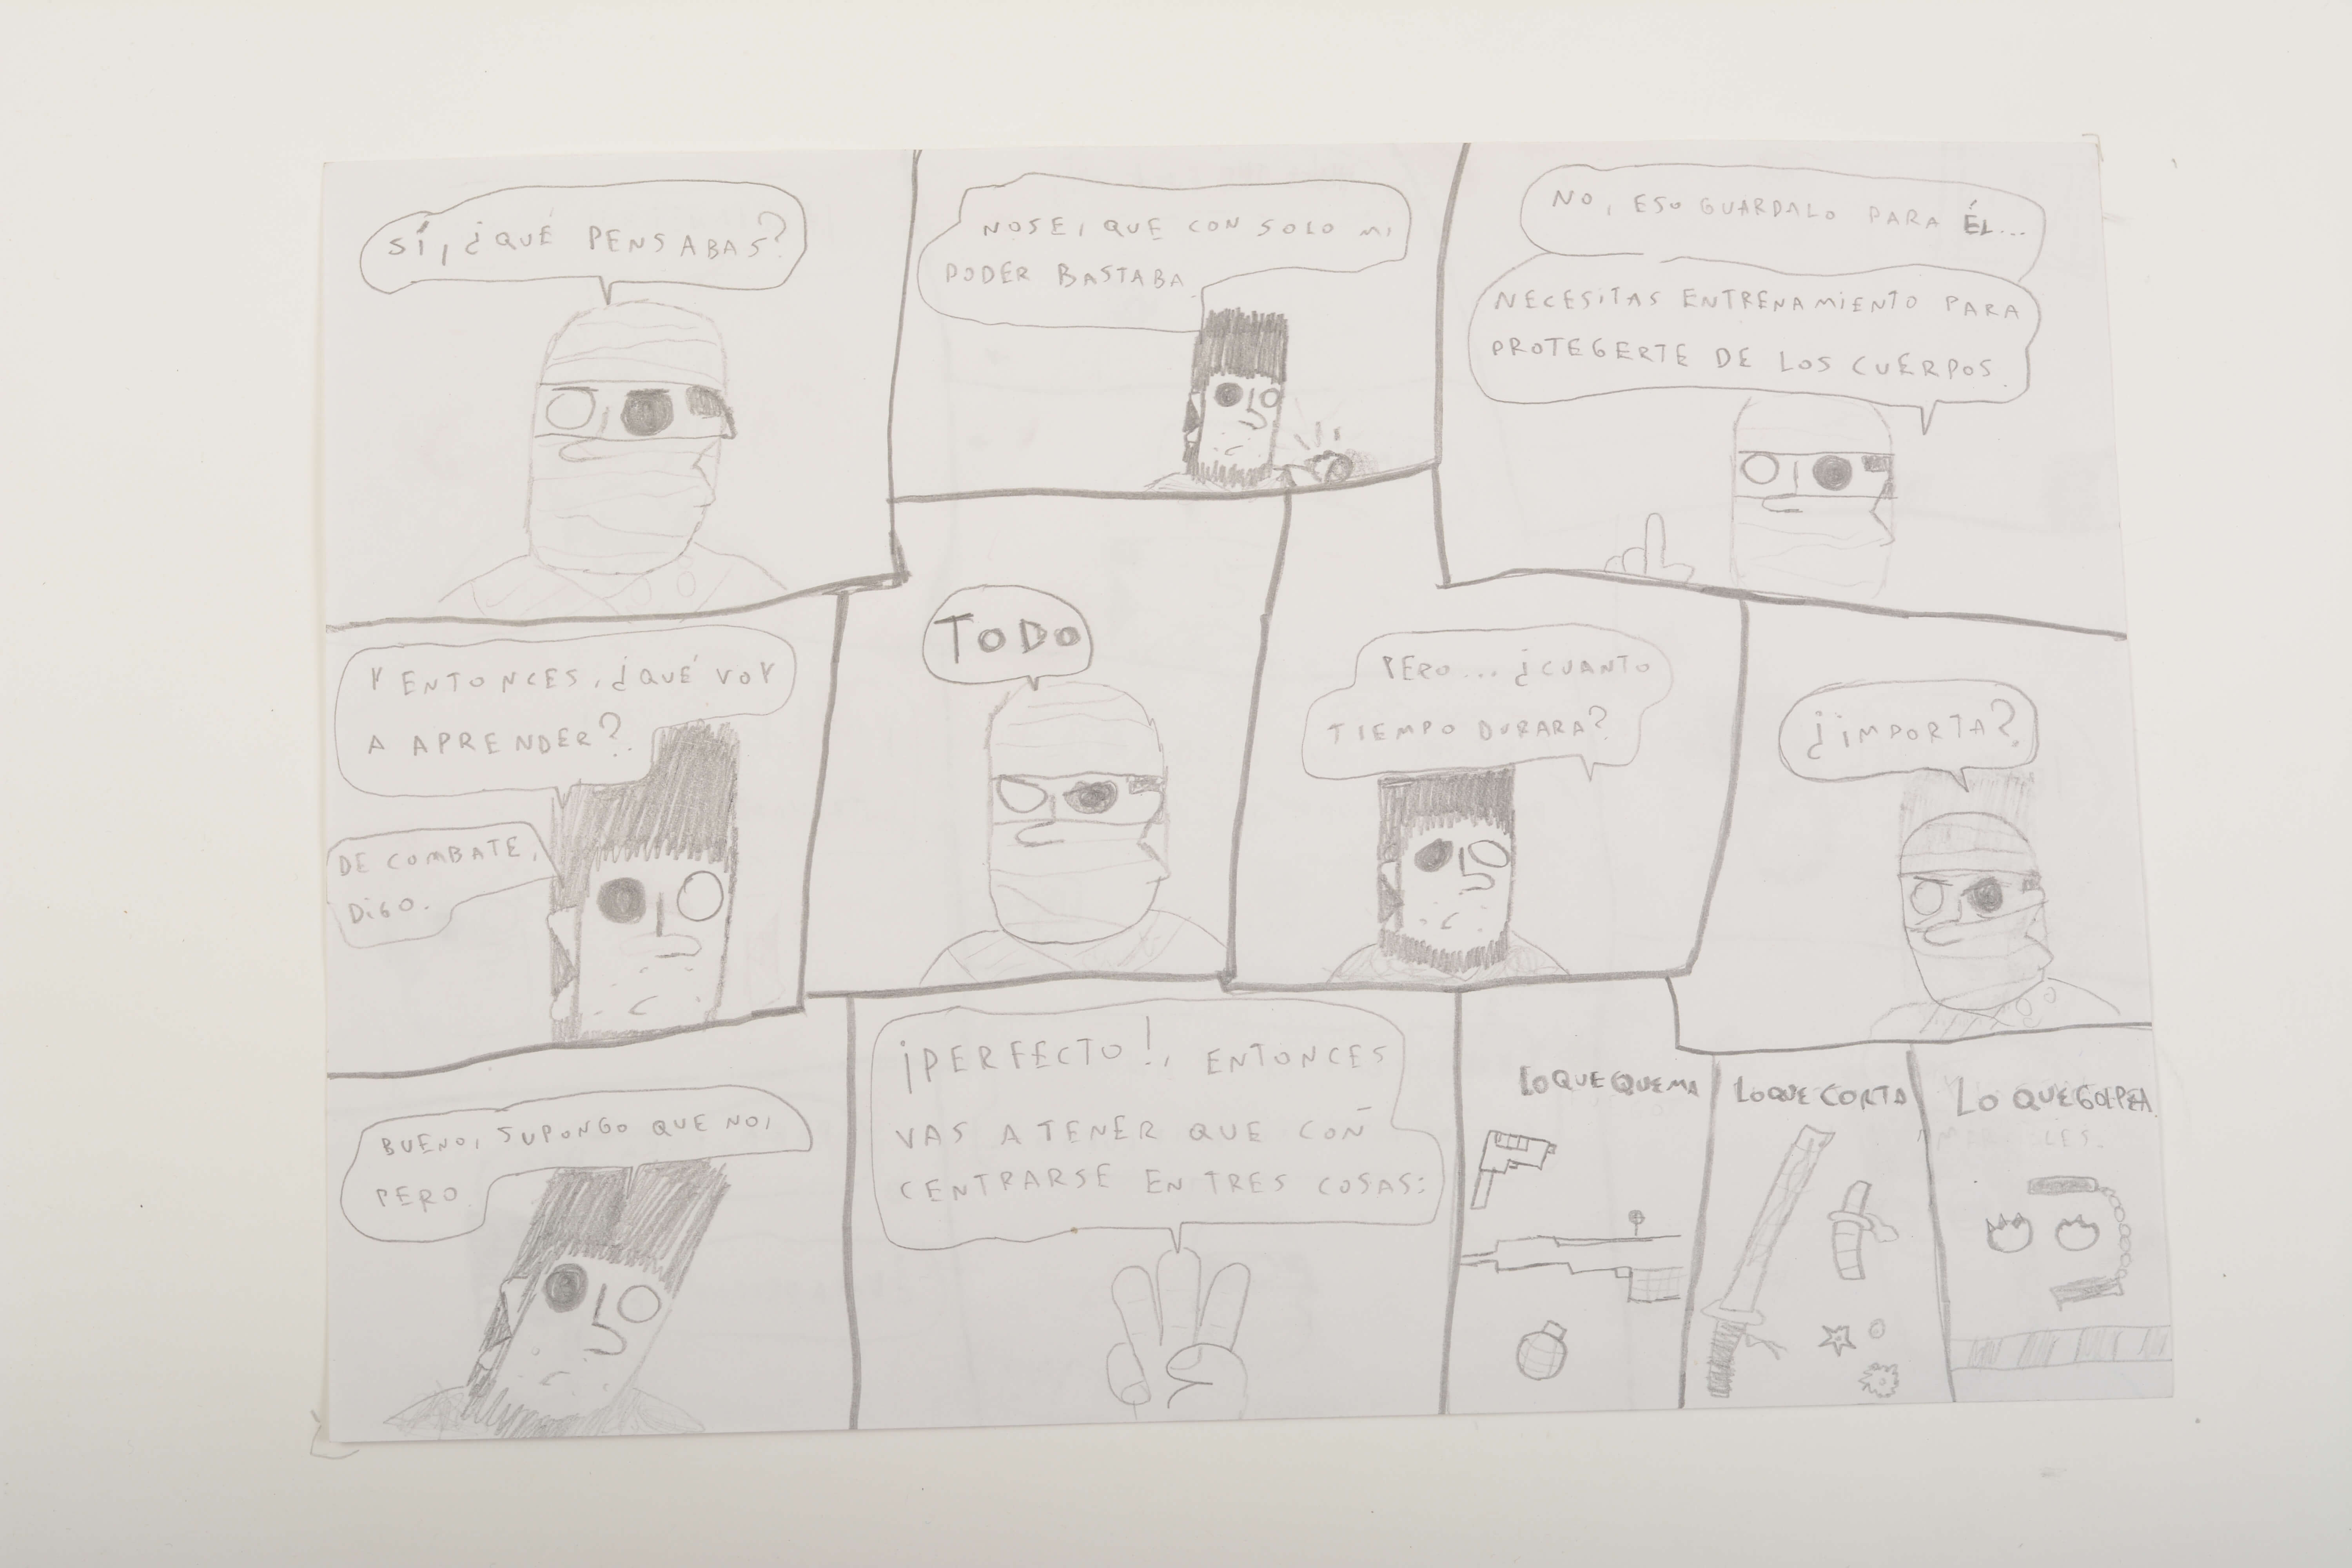 SÍ, ¿QUÉ PENSABAS?
NOSE, QUE CON SOLO MI
PODER BASTABA.
NO, ESO GUARDALO PARA ÉL...
NECESITAS ENTRENAMIENTO PARA
PROTEGERTE DE LOS CUERPOS.
Y ENTONCES, ¿QUÉ VOY
A APRENDER?
DE COMBATE,
DIGO.
TODO
PERO... ¿CUANTO
TIEMPO DURARA?
¿IMPORTA?
BUENO, SUPONGO QUE NO,
PERO
¡PERFECTO!, ENTONCES
VAS A TENER QUE CON
CENTRARSE EN TRES COSAS:
LO QUE QUEMA
LO QUE CORTA
LO QUE GOLPEA